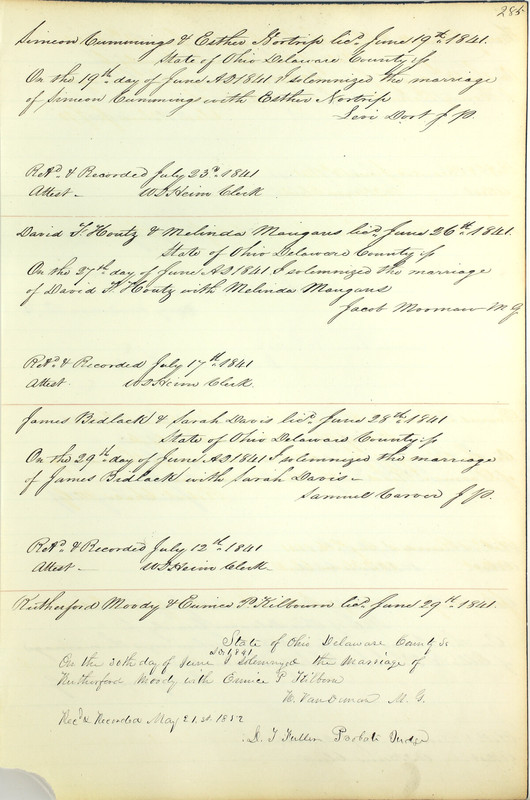 285
Simeon Cummings & Esther Nortrip licd June 19th 1841.
State of Ohio Delaware County ss
On the 19th day of June AD 1841 I solemnized the marriage
of Simeon Cummings with Esther Nortrip
Levi Dort J P.
Retd & Recorded July 23d 1841
Attest - W D Heim Clerk
David F. Houtz & Melinda Mangans licd June 26th 1841.
State of Ohio Delaware County ss
On the 27th day of June AD 1841 I solemnized the marriage
of David F. Houtz with Melinda Mangans
Jacob Mormaw M G.
Retd & Recorded July 17th 1841
Attest. W D Heim Clerk.
James Bidlack & Sarah Davis licd June 28th 1841
State of Ohio Delaware County ss
On the 29th day of June AD 1841 I solemnized the marriage
of James Bidlack with Sarah Davis -
Samuel Carver J P.
Retd & Recorded July 12th 1841
Attest - W D Heim Clerk
Rutherford Moody & Eunice P. Kilbourn licd June 29th 1841.
State of Ohio Delaware County Ss
AD 1841
On the 30th day of June I solemnized the Marriage of
Rutherford Moody with Eunice P Kilborn
M. G.
Recd & Recorded May 21.st 1852
D. T. Fuller Probate Judge